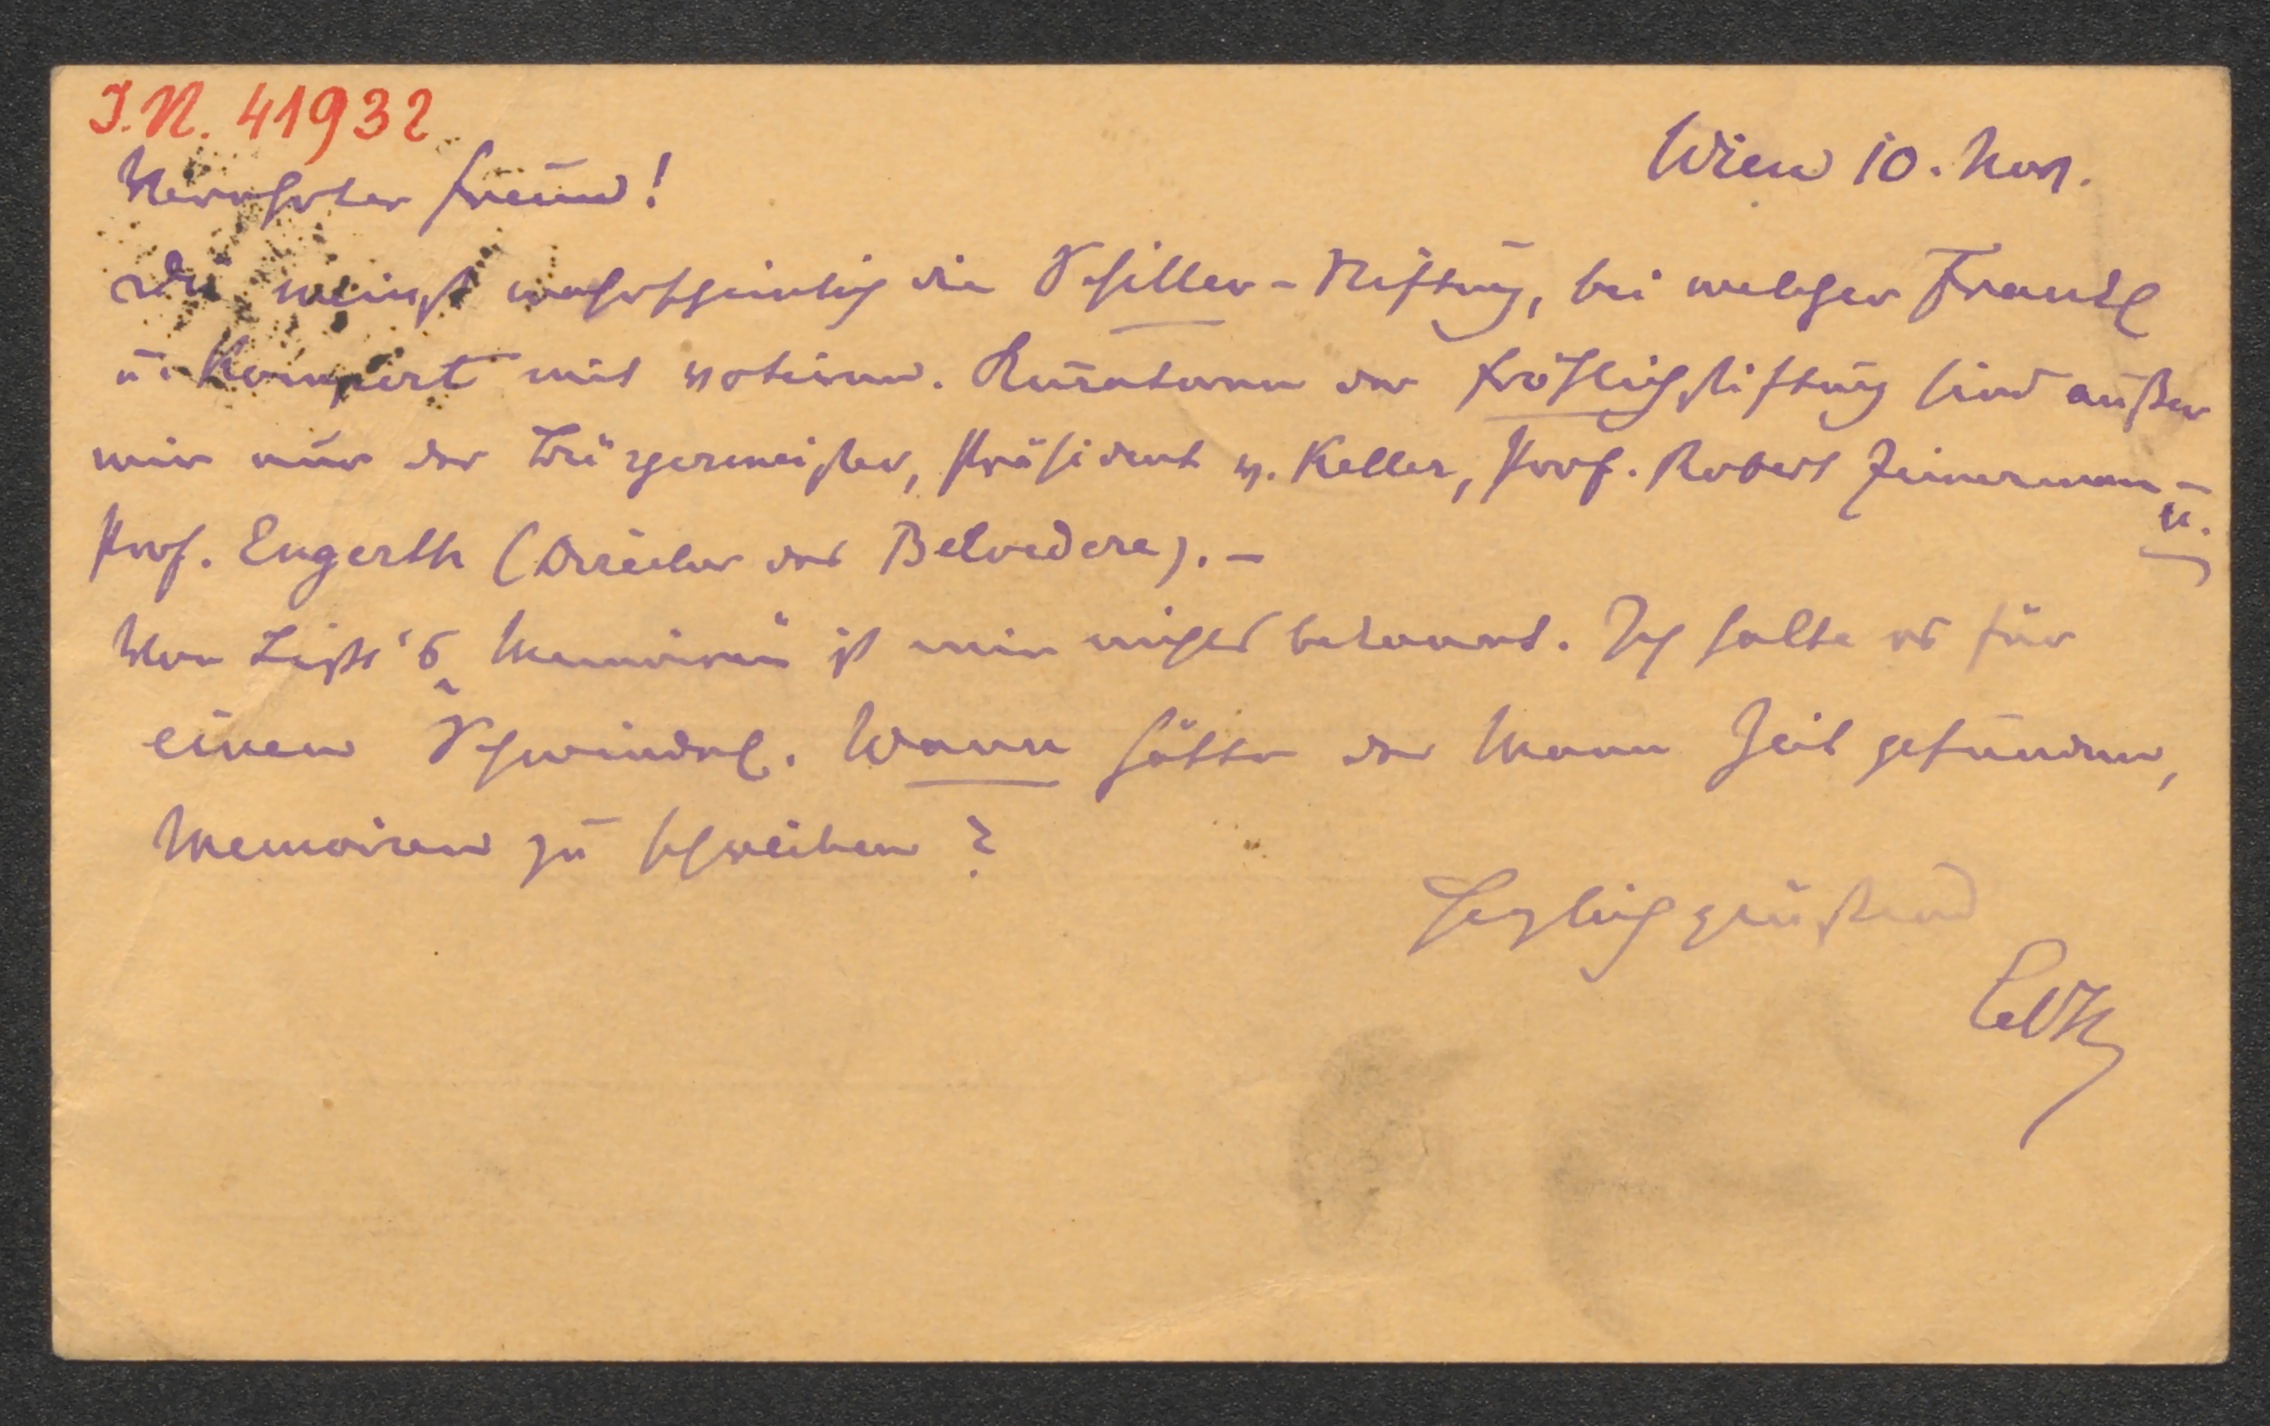 I.N. 41932
Wien 10. Nov.
Verehrter Freund!
Du meinst wahrscheinlich die Schiller-Stiftung, bei welcher Frankl
u. Kompert mit votieren. Kuratoren der Fröhlichstiftung sind außer
mir nur der Bürgermeister, Präsident v. Keller, Prof. Robert Zimmerman u.
Prof. Engerth (Director des Belvedere). –
Von Liszt's „Memoiren“ ist mir nichts bekannt. Ich halte es für
einen Schwindel. Wann hätte der Mann Zeit gefunden,
Memoiren zu schreiben?
Herzlich grüßend
EdH